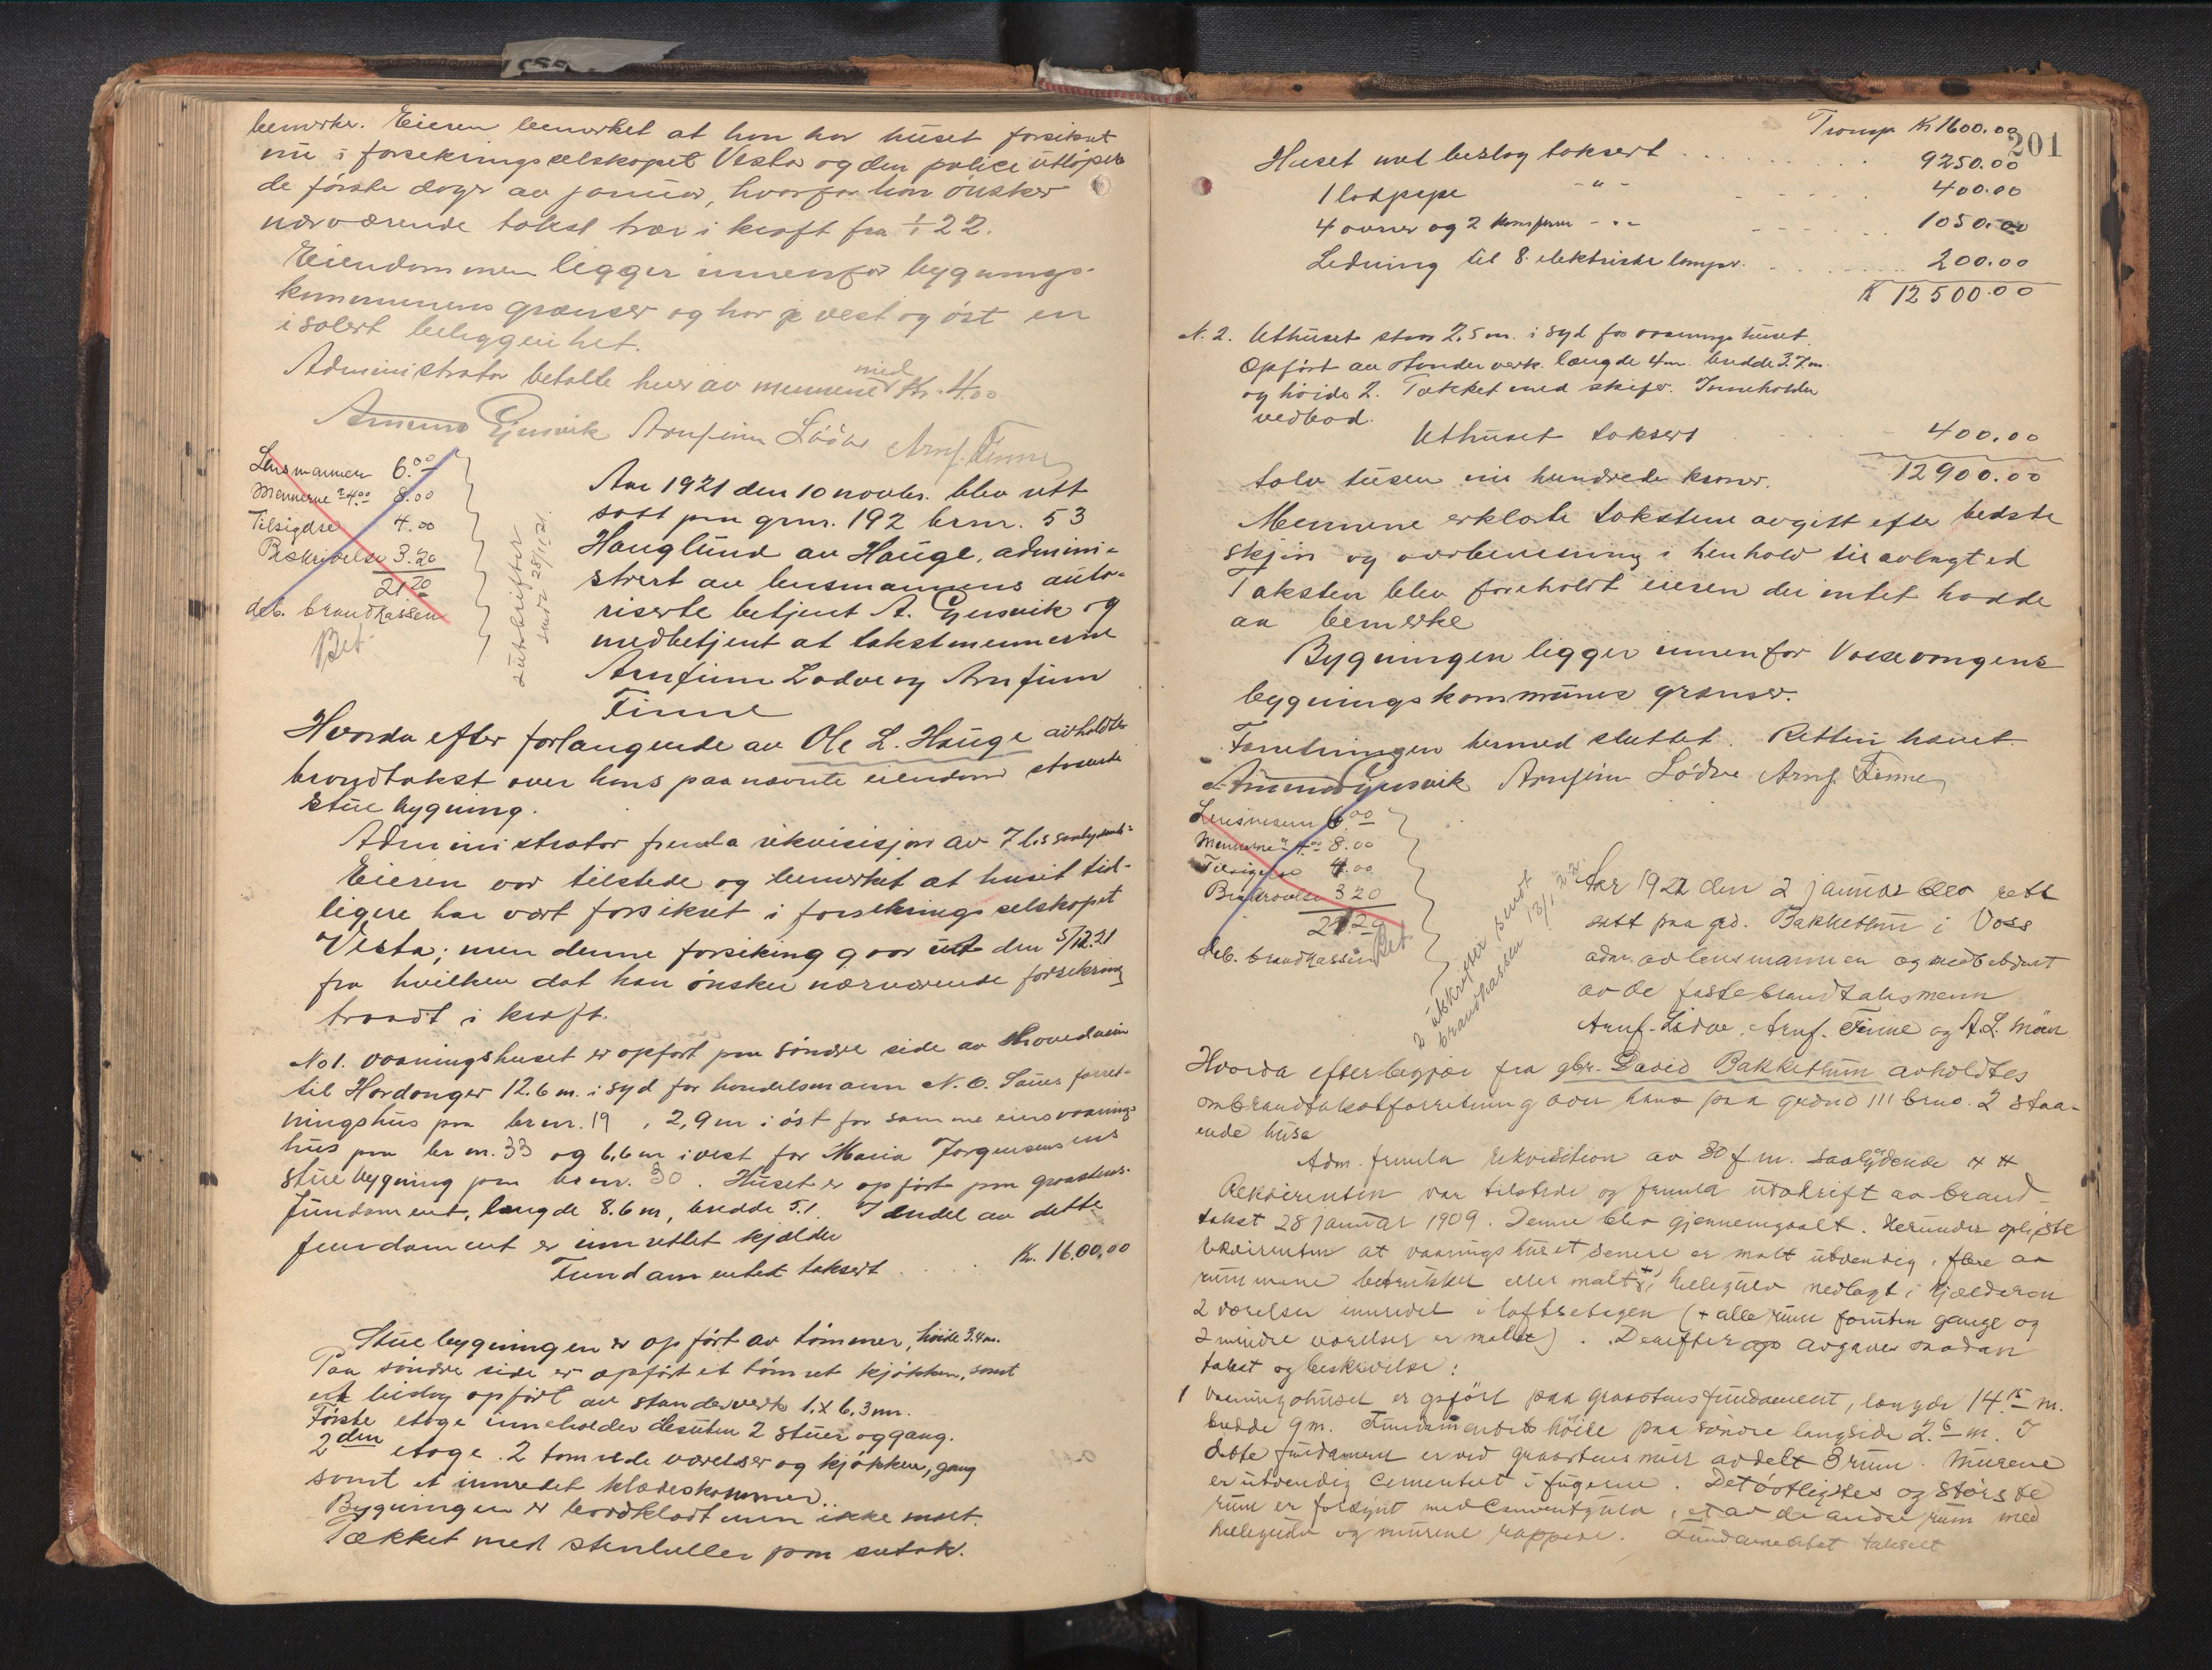 bemerke. Eieren bemerket at hon har huset forsikret
nu i forsekringsselskapet Vesta og den police utløper
de første dager av januar, hvorfor hon ønsker
nærværende takst træ i kraft fra 1/1 22.
Eiendommen ligger innenfor bygnings-
kommunens grænser og har i vest og øst en
isolert beliggenhet.
Administrator betalte hver av mennene med Kr. 4.00
Amund Gjersvik Arnfinn Lødve Arnf. Finne
Lensmannen 6.00
Mennerne a 4.00 8.00
Tilsigelse 4.00
Beskrivelse 3.20
21.20
deb. brandkassen
Bet.
2 utskrifter
sendt 28/11 21.
Aar 1921 den 10 novbr. blev rett
satt paa gnr. 192 brnr. 53
Hauglund av Hauge, admini-
strert av lensmannens auto-
riserte betjent A. Gjersvik og
medbetjent at takstmennerne
Arnfinn Lødve og Arnfinn
Finne
Hvorda efter forlangende av Ole L. Hauge avholdtes
brandtakst over hans paa nævnte eiendom staaende
stuebygning.
Administrator fremla rekvisisjon av 7 ds saalydende:
Eieren var tilstede og bemerket at huset tid-
ligere har vært forsikret i forsekringsselskapet
Vesta; men denne forsikring gaar ut den 5/12.21
fra hvilken dat han ønsker nærværende forsekring
traadt i kraft.
No 1. Vaaningshuset er opført paa søndre side av Hovedveien
til Hardanger 12.6 m. i syd for handelsmann N. O. Saues forret-
ningshus paa brnr. 19, 2,9 m i øst for samme eiers vaanings
hus paa brnr. 33 og 6,6 m i vest for Maria Jørgensens
stuebygning paa brnr. 30. Huset er opført paa graastens-
fundament, længde 8.6 m, bredde 5.1. I endel av dette
fundament er innrettet kjælder
Fundamentet taksert . . . Kr. 1600,00
Stuebygningen er opført av tømmer, høide 3.4 m.
Paa søndre side er opført et tømret kjøkken, samt
et bislag opført av standerverk 1. x 6,3 m.
Første etage inneholder desuten 2 stuer og gang.
2den etage. 2 tømrede værelser og kjøkken, gang
samt et innredet klædeskammer.
Bygningen er bordklædt men ikke malt.
Tækket med stenheller paa sutak.
201
Transp. Kr 1600.00
Huset med beslag taksert . . . 9250.00
1 lodpipe - " - 400.00
4 ovner og 2 komfurer - " - 1050.00
Ledning til 8 elektriske lamper . . . 200.00
Kr 12500.00
N. 2. Uthuset staar 2,5 m. i syd for vaaningshuset.
Opført av standerverk. længde 4 m. bredde 3.7 m.
og høide 2. Tækket med skifer. Inneholder
vedbod.
Uthuset taksert 400.00
tolv tusen ni hundrede kroner. 12900.00
Mennene erklærte taksterne avgitt efter bedste
skjøn og overbevisning i henhold til avlagt ed
Taksten blev foreholdt eieren der intet hadde
aa bemerke
Bygningen ligger innenfor Vossevangens
bygningskommunes grænser.
Forretningen hermed sluttet. Retten hævet.
Amund Gjersvik Arnfinn Lødve Arnf. Finne
Lensmann 6.00
Mennerne a 4.00 8.00
Tilsigelse 4.00
Beskrivelse 3.20
21.20
deb. brandkassen
Bet.
2 utskrifter sendt
brandkassen 13/1 22.
Aar 1922 den 2 januar blev rett
satt paa gd. Bakketun i Voss
adm. av lensmannen og medbetjent
av de faste brandtakstmenn
Arnf. Lødve, Arnf. Finne og A. L. Møn
Hvorda efter begjær fra gbr. David Bakketun avholdtes
ombrandtakstforretning over hans paa grdno 111 brno. 2 staa-
ende huse
Adm. fremla rekvisition av 30 f. m. saalydende # #
Rekvirenten var tilstede og fremla utskrift av brand-
takst 28 januar 1909. Denne blev gjennemgaatt. Herunder oplyste
rekvirenten at vaaningshuset senere er malt utvendig, flere av
rummene betrukket eller malt +) hellegulv nedlagt i kjælderen
2 værelser innredet i loftsetagen (+ alle rum foruten gange og
2 mindre værelser er malet). Derefter avgaves saadan
takst og beskrivelse:
1 Vaaningshuset er opført paa graastensfundament, længde 14.15 m.
bredde 9 m. Fundamentets høide paa søndre langside 2.6 m. I
dette fundament er ved graastens mur avdelt 3 rum. Murene
er utvendig cementert i fugerne. Det østligste og største
rum er forsynt med cementgulv, et av de andre rum med
hellegulv og murene rappede. Fundamentet taksert